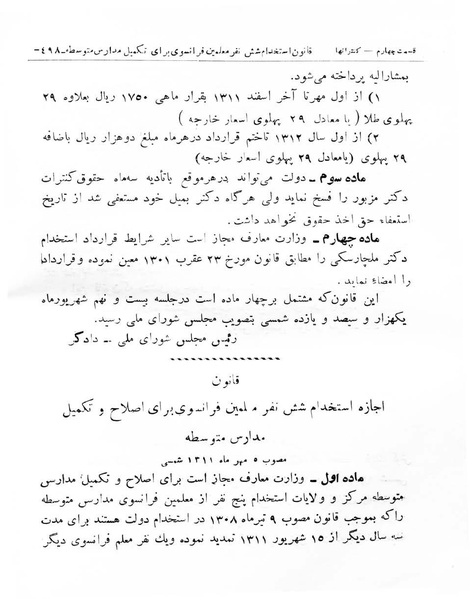 قسمت چهارم — کنتراتها قانون استخدام شش نفر معلمین فرانسوی برای تکمیل مدارس متوسطه ـ۴۹۸ـ
بمشارالیه پرداخته می‌شود.
۱) از اول مهر تا آخر اسفند ۱۳۱۱ بقرار ماهی ۱۷۵۰ ریال بعلاوه ۲۹
پهلوی طلا ( یا معادل ۲۹ پهلوی اسعار خارجه )
۲) از اول سال ۱۳۱۲ تا ختم قرارداد در هر ماه مبلغ دو هزار ریال باضافه
۲۹ پهلوی (یا معادل ۲۹ پهلوی اسعار خارجه)
ماده سوم ـ دولت می‌تواند در هر موقع با تأدیه سه ماه حقوق کنترات
دکتر مزبور را فسخ نماید ولی هر گاه دکتر بمیل خود مستعفی شد از تاریخ
استعفاء حق اخذ حقوق نخواهد داشت.
ماده چهارم ـ وزارت معارف مجاز است سایر شرایط قرارداد استخدام
دکتر ملچارسکی را مطابق قانون مورخ ۲۳ عقرب ۱۳۰۱ معین نموده و قرارداد
را امضاء نماید.
این قانون که مشتمل بر چهار ماده است در جلسه بیست و نهم شهریور ماه
یکهزار و سیصد و یازده شمسی بتصویب مجلس شورای ملی رسید.
رئیس مجلس شورای ملی ـ دادگر
قانون
اجازه استخدام شش نفر معلمین فرانسوی برای اصلاح و تکمیل
مدارس متوسطه
مصوب ۵ مهر ماه ۱۳۱۱ شمسی
ماده اول ـ وزارت معارف مجاز است برای اصلاح و تکمیل مدارس
متوسطه مرکز و ولایات استخدام پنج نفر از معلمین فرانسوی مدارس متوسطه
را که بموجب قانون مصوب ۹ تیر ماه ۱۳۰۸ در استخدام دولت هستند برای مدت
سه سال دیگر از ۱۵ شهریور ۱۳۱۱ تمدید نموده ویك نفر معلم فرانسوی دیگر